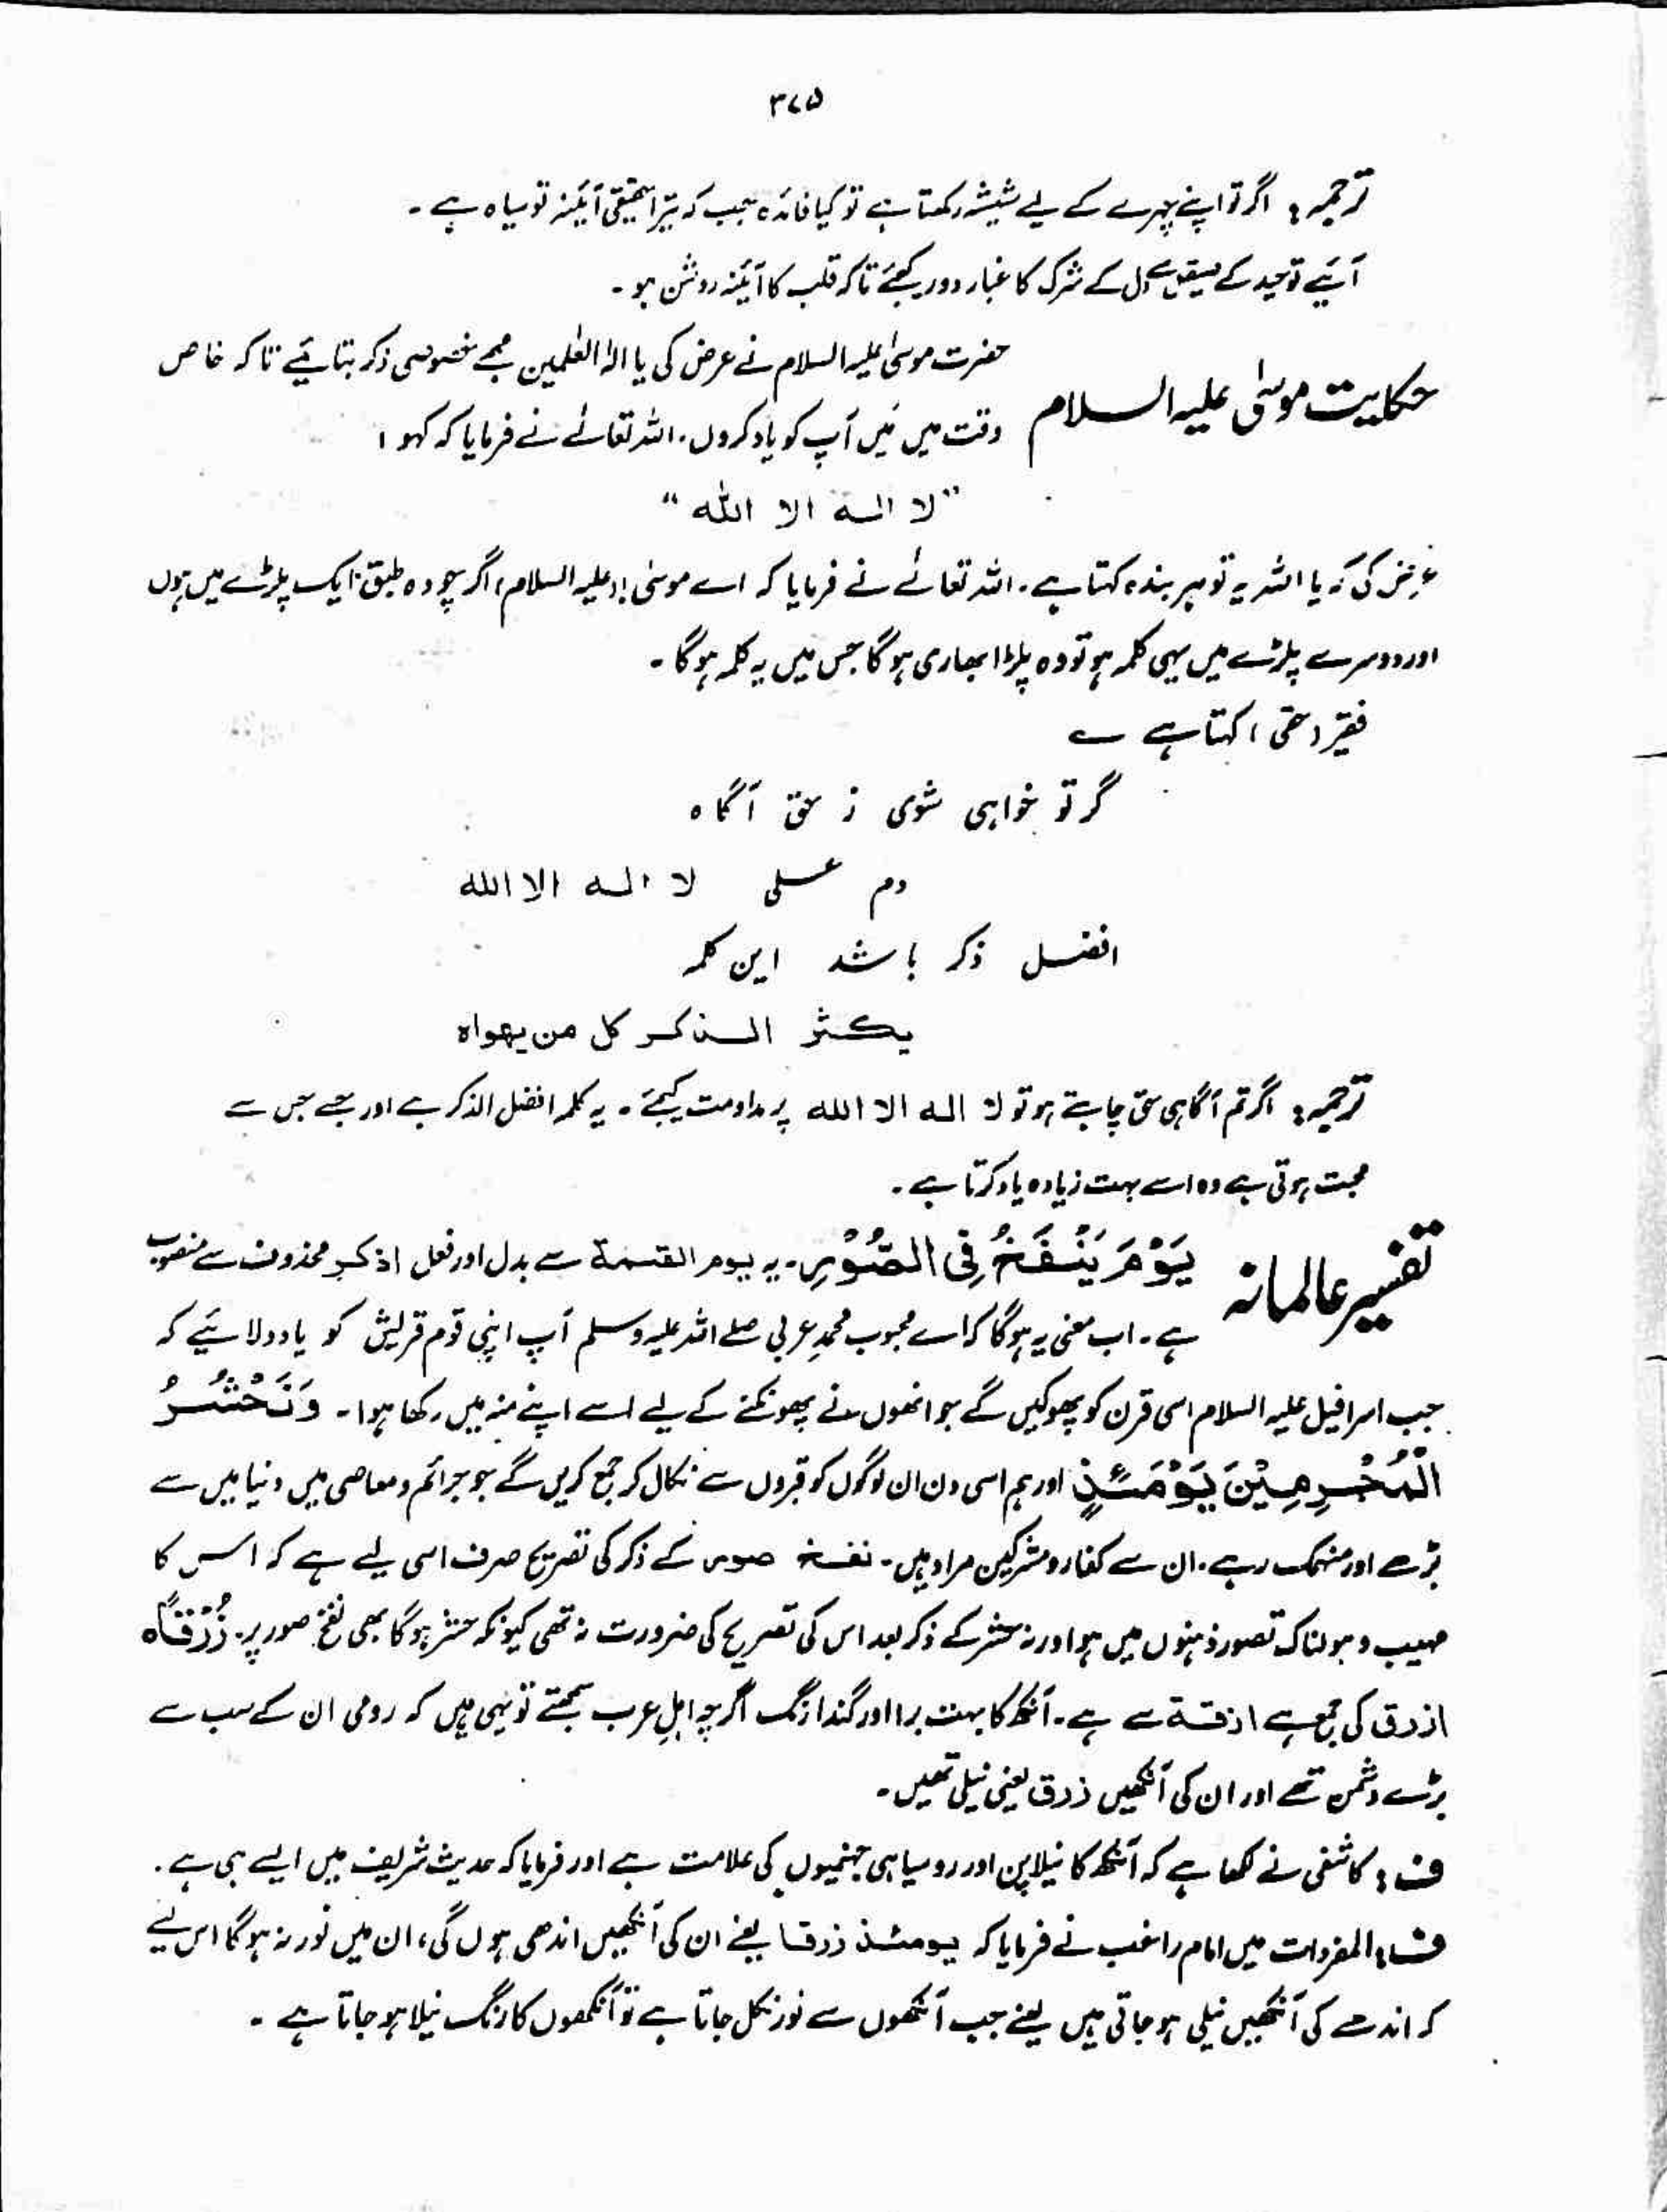 ۳۷۵
ترجمہ: اگر تو اپنے چہرے کے لیے شیشہ رکھتا ہے تو کیا فائدہ جب کہ تیرا حقیقی آئینہ تو سیاہ ہے۔
آئیے توحید کے صیقل سے دل کے شرک کا غبار دور کیجئے تاکہ قلب کا آئینہ روشن ہو۔
حکایت موسیٰ علیہ السلام
حضرت موسیٰ علیہ السلام نے عرض کی یا الٰہ العٰلمین مجھے خصوصی ذکر بتائیے تاکہ خاص
وقت میں مَیں آپ کو یاد کروں۔ اللہ تعالےٰ نے فرمایا کہ کہو:
"لا الٰہ الا اللہ"
عرض کی کہ یا اللہ یہ تو ہر بندہ کہتا ہے۔ اللہ تعالےٰ نے فرمایا کہ اے موسیٰ (علیہ السلام) اگر چودہ طبق ایک پلڑے میں ہوں
اور دوسرے پلڑے میں یہی کلمہ ہو تو وہ پلڑا بھاری ہوگا جس میں یہ کلمہ ہوگا۔
فقیر (حقی) کہتا ہے ؎
گر تو خواہی شوی ز حق آگاہ
دم علی لا الہ الا اللہ
افضل ذکر باشد این کلمہ
یکثر الذکر کل من یھواہ
ترجمہ: اگر تم آگاہی حق چاہتے ہو تو لا الہ الا اللہ پر مداومت کیجئے۔ یہ کلمہ افضل الذکر ہے اور جسے جس سے
محبت ہوتی ہے وہ اسے بہت زیادہ یاد کرتا ہے۔
تفسیر عالمانہ
یَوْمَ یُنْفَخُ فِی الصُّوْرِ۔ یہ یوم القیمۃ سے بدل اور فعل اذکر محذوف سے منصوب
ہے۔ اب معنی یہ ہوگا کہ اے محبوب محمدِ عربی صلے اللہ علیہ وسلم آپ اپنی قوم قریش کو یاد دلائیے کہ
جب اسرافیل علیہ السلام اسی قرن کو پھونکیں گے جو انھوں نے پھونکنے کے لیے اسے اپنے منہ میں رکھا ہوا۔ وَنَحْشُرُ
الْمُجْرِمِیْنَ یَوْمَئِذٍ اور ہم اسی دن ان لوگوں کو قبروں سے نکال کر جمع کریں گے جو جرائم و معاصی میں دنیا میں سے
بڑھے اور منہمک رہے۔ ان سے کفار و مشرکین مراد ہیں۔ نفخ صور کے ذکر کی تصریح صرف اسی لیے ہے کہ اس کا
مہیب و ہولناک تصور ذہنوں میں ہو اور نہ حشر کے ذکر بعد اس کی تصریح کی ضرورت نہ تھی کیونکہ حشر ہوگا بھی نفخ صور پر۔ زُرْقًاہ
ازرق کی جمع ہے ازرقۃ سے ہے۔ آنکھ کا بہت برا اور گندا رنگ اگرچہ اہلِ عرب سمجھتے تو یہی ہیں کہ رومی ان کے سب سے
بڑے دشمن تھے اور ان کی آنکھیں زرق یعنی نیلی تھیں۔
ف: کاشفی نے لکھا ہے کہ آنکھ کا نیلا پن اور روسیاہی جہنمیوں کی علامت ہے اور فرمایا کہ حدیث شریف میں ایسے ہی ہے۔
ف: المفردات میں امام راغب نے فرمایا کہ یومئذ زرقا یعنے ان کی آنکھیں اندھی ہوں گی، ان میں نور نہ ہوگا اس لیے
کہ اندھے کی آنکھیں نیلی ہو جاتی ہیں یعنے جب آنکھوں سے نور نکل جاتا ہے تو آنکھوں کا رنگ نیلا ہو جاتا ہے۔